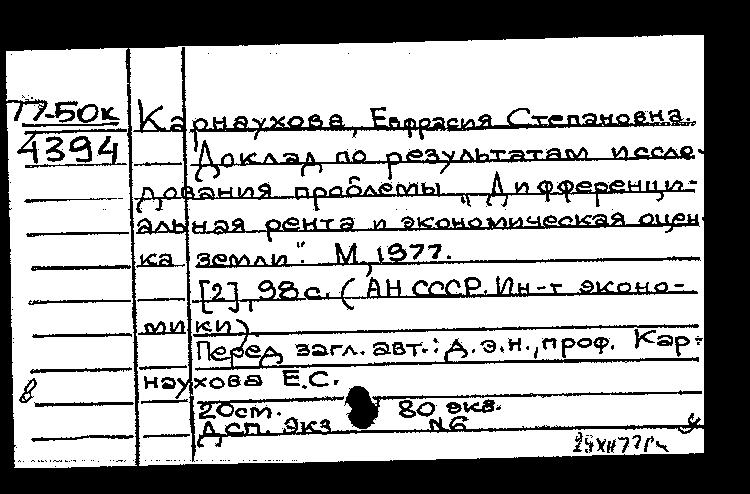 77-50к
4394
Карнаухова, Евфрасия Степановна.
Доклад по результатам иссле-
дования проблемы „Дифференци-
альная рента и экономическая оцен-
ка земли". М, 1977.
[2], 98 с. (АН СССР. Ин-т эконо-
мики)
Перед загл. авт.: д.э.н., проф. Кар-
наухова Е.С.
20см. 80 экз.
Дсп. Экз N6